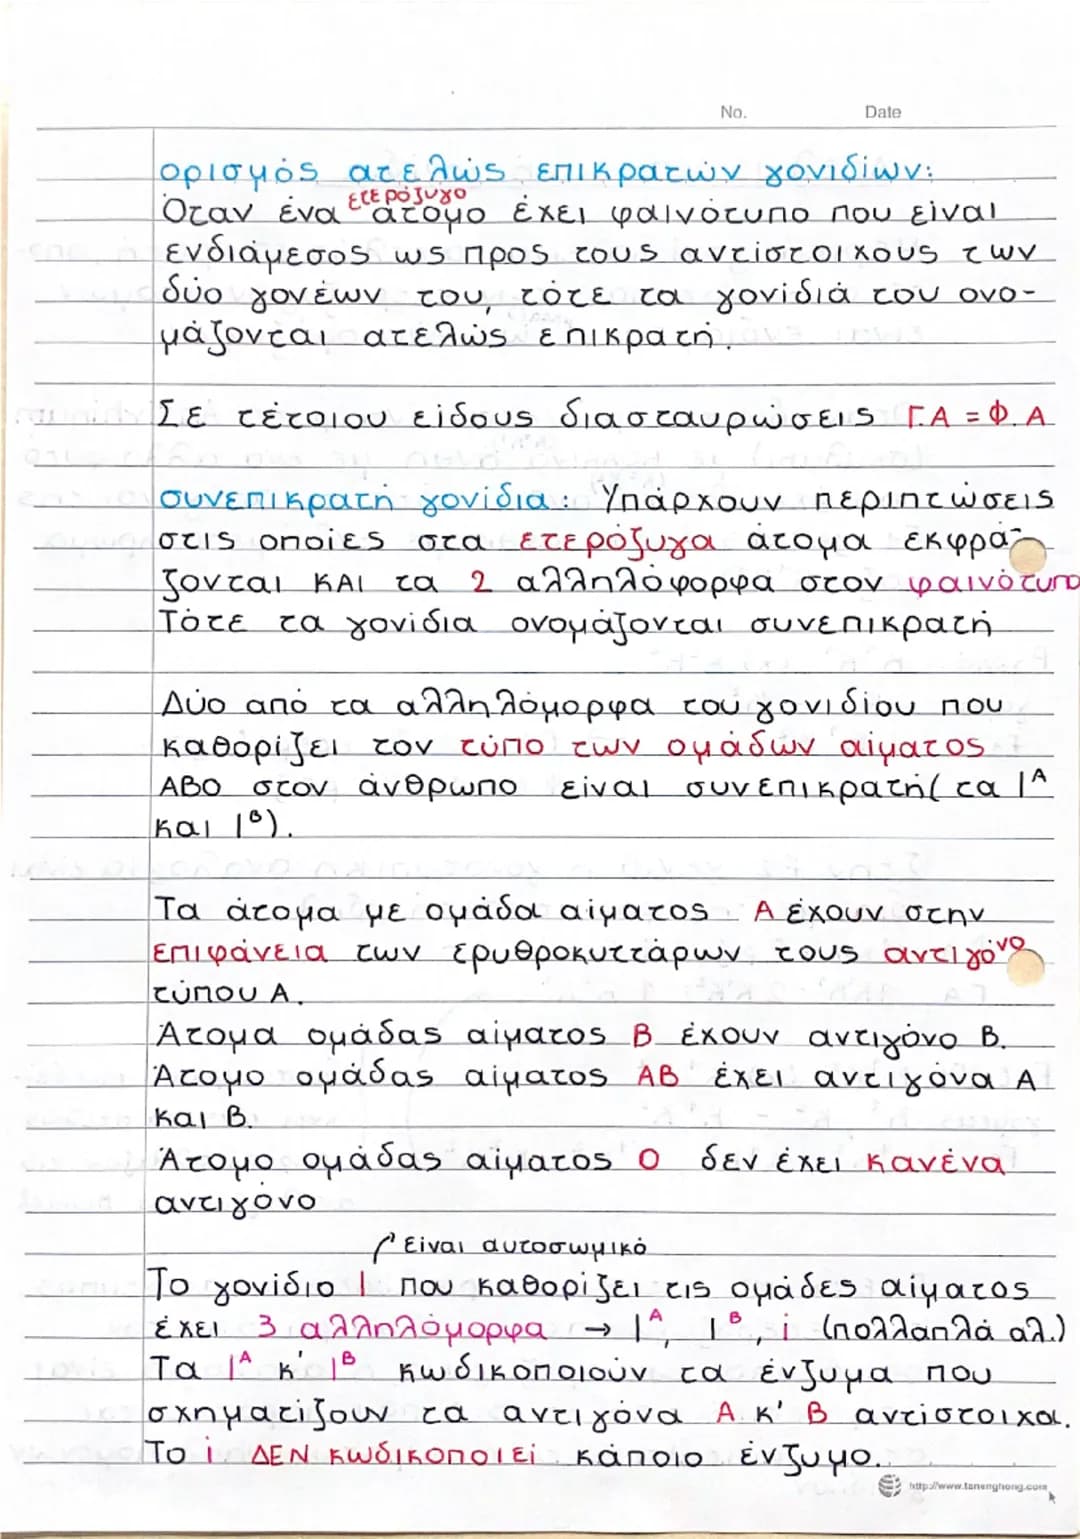 No. Date
ορισμός ατελώς επικρατών γονιδίων:
ετερόζυγο
Όταν ένα άτομο έχει φαινότυπο που είναι
ενδιάμεσος ως προς τους αντίστοιχους των
δύο γονέων του, τότε τα γονίδιά του ονο-
μάζονται ατελώς επικρατή.
Σε τέτοιου είδους διασταυρώσεις Γ.Α = Φ.Α
συνεπικρατή γονίδια: Υπάρχουν περιπτώσεις
στις οποίες στα ετερόζυγα άτομα εκφρά-
ζονται ΚΑΙ τα 2 αλληλόμορφα στον φαινότυπο
Τότε τα γονίδια ονομάζονται συνεπικρατή
Δύο από τα αλληλόμορφα του γονιδίου που
καθορίζει τον τύπο των ομάδων αίματος
ΑΒΟ στον άνθρωπο είναι συνεπικρατή (τα Iᴬ
και Iᴮ).
Τα άτομα με ομάδα αίματος Α έχουν στην
επιφάνεια των ερυθροκυττάρων τους αντιγόνο
τύπου Α.
Άτομα ομάδας αίματος Β έχουν αντιγόνο Β.
Άτομο ομάδας αίματος ΑΒ έχει αντιγόνα Α
και Β.
Άτομο ομάδας αίματος Ο δεν έχει κανένα
αντιγόνο
είναι αυτοσωμικό
Το γονίδιο I που καθορίζει τις ομάδες αίματος
έχει 3 αλληλόμορφα → Iᴬ, Iᴮ, i (πολλαπλά αλ.)
Τα Iᴬ κ' Iᴮ κωδικοποιούν τα ένζυμα που
σχηματίζουν τα αντιγόνα Α κ' Β αντίστοιχα.
Το i ΔΕΝ κωδικοποιεί κάποιο ένζυμο.
http://www.tanenghong.com